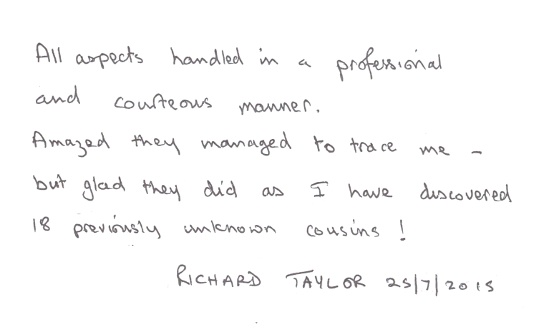 All aspects handled in a professional
and courteous manner.
Amazed they managed to trace me -
but glad they did as I have discovered
18 previously unknown cousins !
RICHARD TAYLOR 25/7/2015